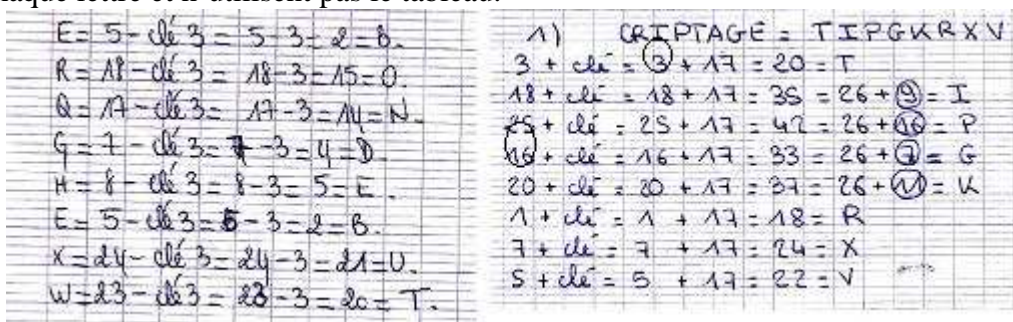 aque lettre et n'utilisent pas le tableau.
E = 5 - clé 3 = 5 - 3 = 2 = B.
R = 18 - clé 3 = 18 - 3 = 15 = O.
Q = 17 - clé 3 = 17 - 3 = 14 = N.
G = 7 - clé 3 = 7 - 3 = 4 = D.
H = 8 - clé 3 = 8 - 3 = 5 = E.
E = 5 - clé 3 = 5 - 3 = 2 = B.
X = 24 - clé 3 = 24 - 3 = 21 = U.
W = 23 - clé 3 = 23 - 3 = 20 = T.
1) CRIPTAGE = TIPGKRXV
3 + clé = 3 + 17 = 20 = T
18 + clé = 18 + 17 = 35 = 26 + 9 = I
25 + clé = 25 + 17 = 42 = 26 + 16 = P
16 + clé = 16 + 17 = 33 = 26 + 7 = G
20 + clé = 20 + 17 = 37 = 26 + 11 = K
1 + clé = 1 + 17 = 18 = R
7 + clé = 7 + 17 = 24 = X
5 + clé = 5 + 17 = 22 = V